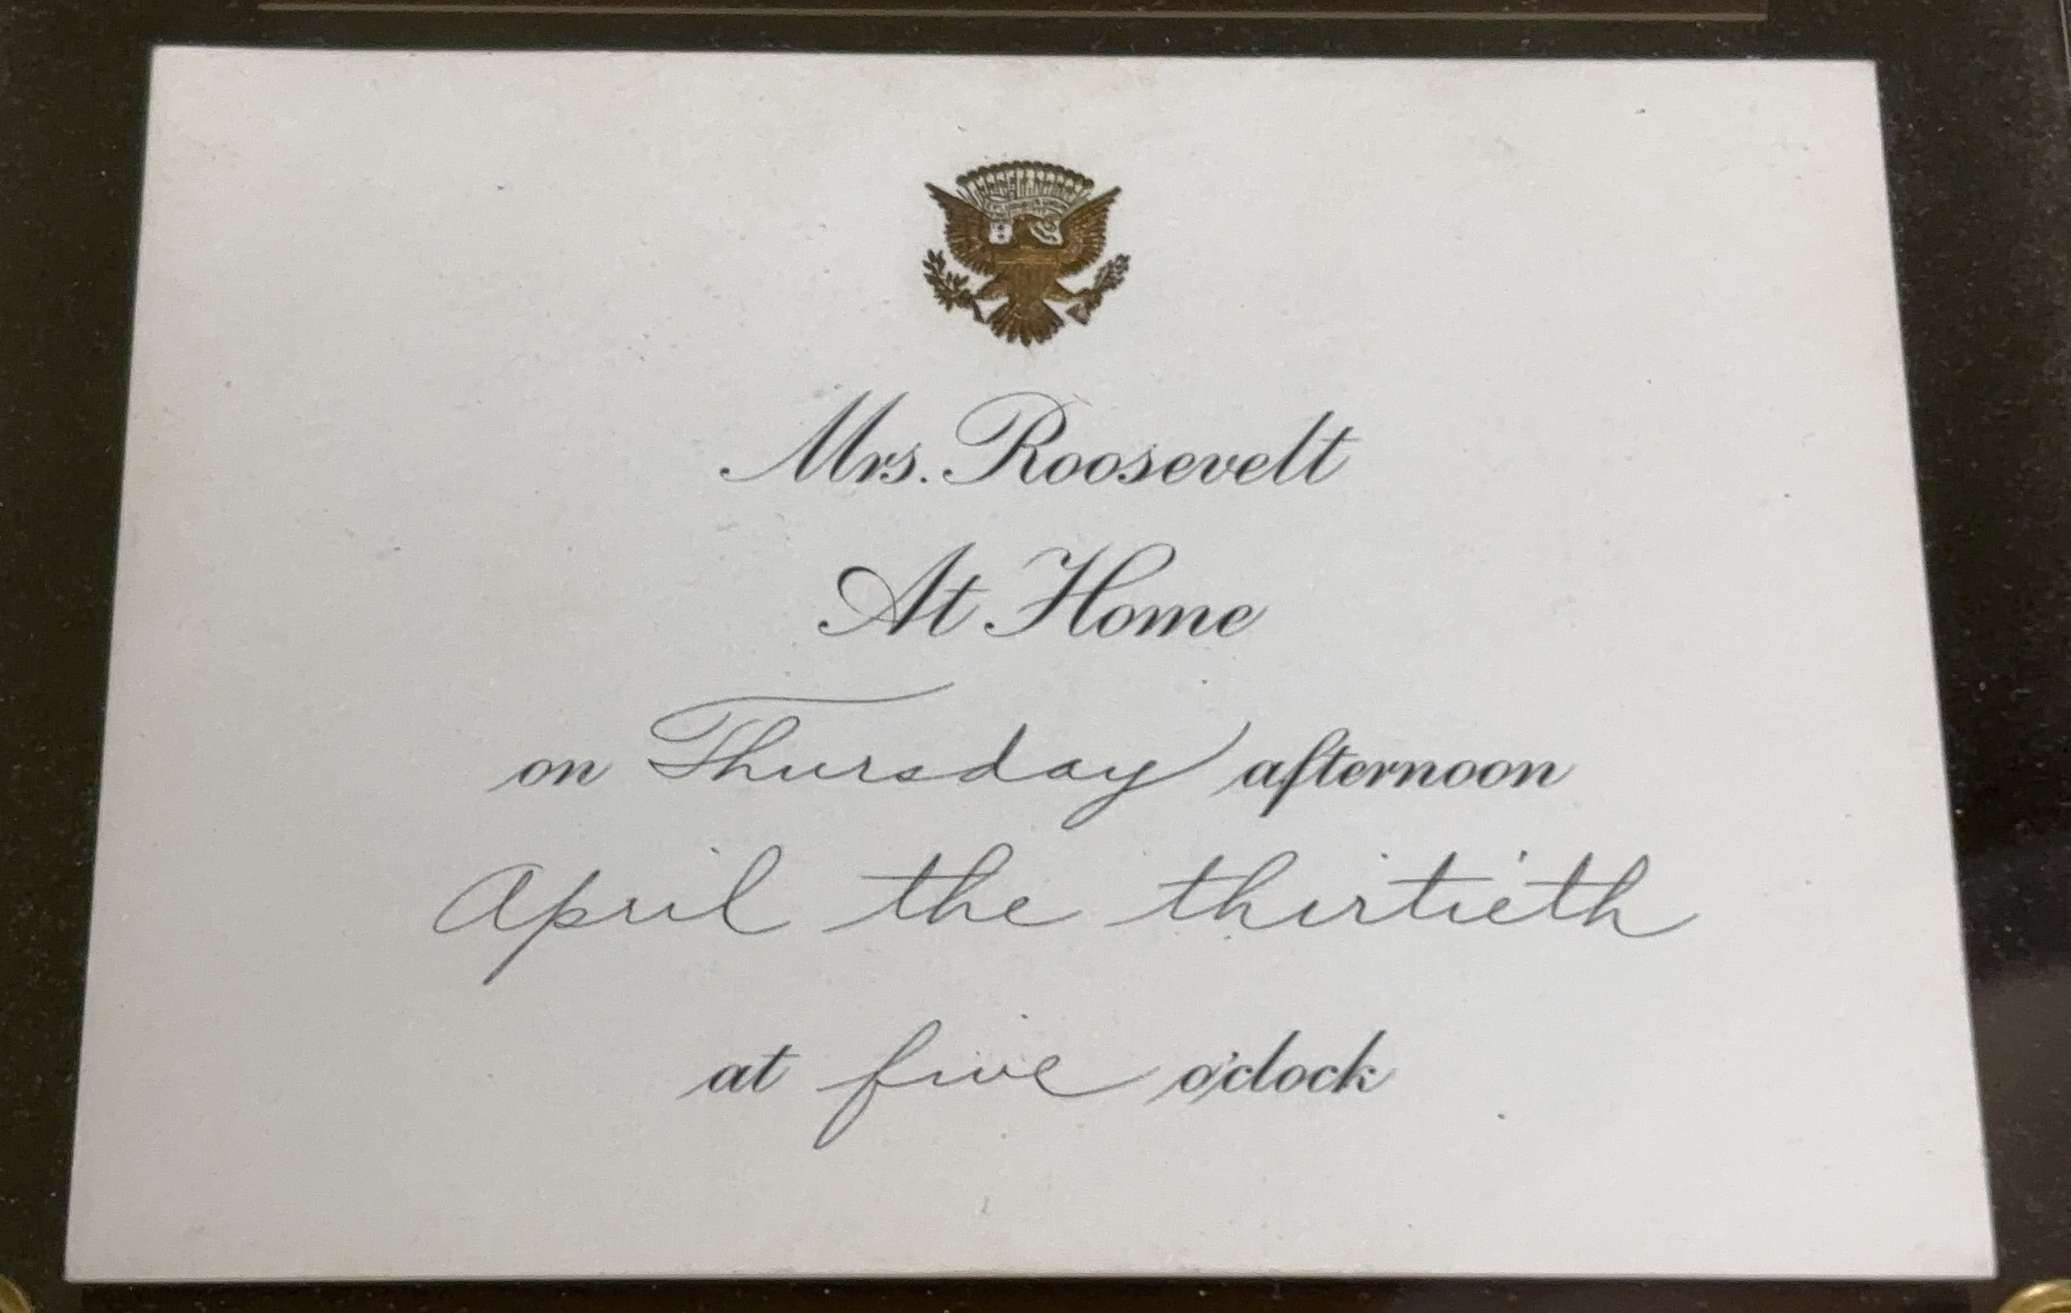 Mrs. Roosevelt
At Home
on Thursday afternoon
April the thirtieth
at five o'clock